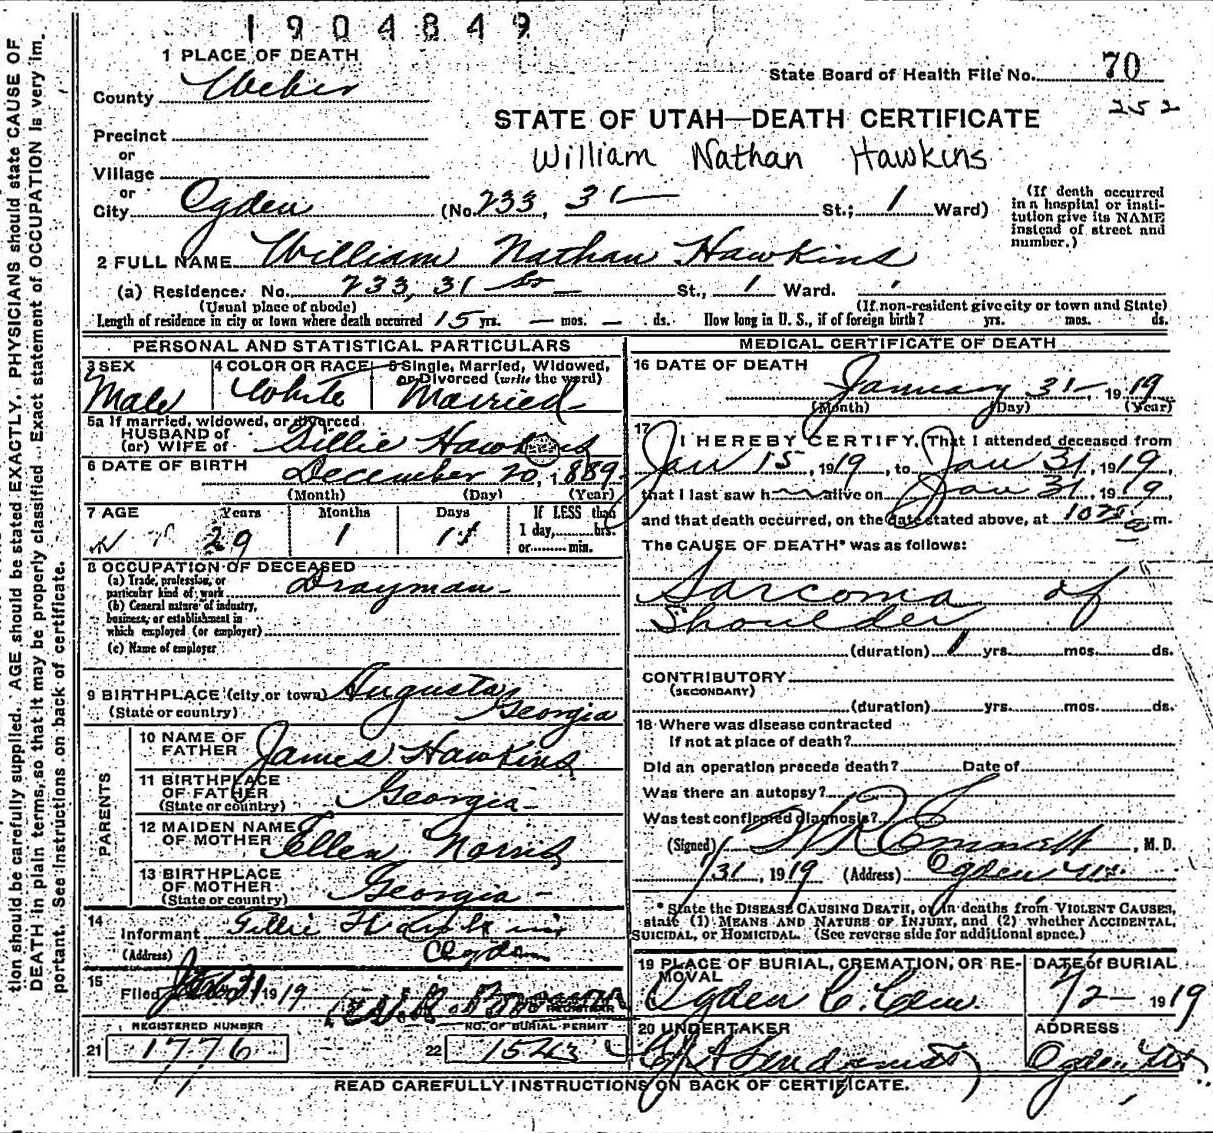 1904849
1 PLACE OF DEATH
County Weber
State Board of Health File No. 70
252
STATE OF UTAH—DEATH CERTIFICATE
William Nathan Hawkins
Precinct
or
Village
or
City Ogden (No. 233, 31 St.; 1 Ward)
(If death occurred
in a hospital or insti-
tution give its NAME
instead of street and
number.)
2 FULL NAME William Nathan Hawkins
(a) Residence. No. 233, 31 St St., 1 Ward.
(Usual place of abode) (If non-resident give city or town and State)
Length of residence in city or town where death occurred 15 yrs. — mos. — ds. How long in U. S., if of foreign birth? yrs. mos. ds.
PERSONAL AND STATISTICAL PARTICULARS
3 SEX
Male
4 COLOR OR RACE
White
5 Single, Married, Widowed,
or Divorced (write the word)
Married
5a If married, widowed, or divorced
HUSBAND of
(or) WIFE of Gillie Hawkins
6 DATE OF BIRTH
December 20, 1889
(Month) (Day) (Year)
7 AGE Years Months Days If LESS than
29 1 11 1 day, hrs.
or min.
8 OCCUPATION OF DECEASED
(a) Trade, profession, or
particular kind of work Drayman
(b) General nature of industry,
business, or establishment in
which employed (or employer)
(c) Name of employer
9 BIRTHPLACE (city or town) Augusta
(State or country) Georgia
PARENTS
10 NAME OF
FATHER James Hawkins
11 BIRTHPLACE
OF FATHER
(State or country) Georgia
12 MAIDEN NAME
OF MOTHER Ellen Norris
13 BIRTHPLACE
OF MOTHER
(State or country) Georgia
14
Informant Gillie Hawkins
(Address) Ogden
15
Filed 1919
REGISTRAR
REGISTERED NUMBER
21 1776
NO. OF BURIAL PERMIT
22 1543
MEDICAL CERTIFICATE OF DEATH
16 DATE OF DEATH
January 31 1919
(Month) (Day) (Year)
17
I HEREBY CERTIFY, That I attended deceased from
Jan 15, 1919, to Jan 31, 1919,
that I last saw h alive on Jan 31, 1919,
and that death occurred, on the date stated above, at m.
The CAUSE OF DEATH* was as follows:
Sarcoma of
Shoulder
(duration) 1 yrs. mos. ds.
CONTRIBUTORY
(SECONDARY)
(duration) yrs. mos. ds.
18 Where was disease contracted
If not at place of death?
Did an operation precede death? Date of
Was there an autopsy?
Was test confirmed diagnosis?
(Signed) , M. D.
1/31, 1919 (Address) Ogden Ut.
* State the DISEASE CAUSING DEATH, or in deaths from VIOLENT CAUSES,
state (1) MEANS AND NATURE OF INJURY, and (2) whether ACCIDENTAL,
SUICIDAL, or HOMICIDAL. (See reverse side for additional space.)
19 PLACE OF BURIAL, CREMATION, OR RE-
MOVAL
Ogden C. Cem.
DATE of BURIAL
1919
20 UNDERTAKER
ADDRESS
Ogden Ut
READ CAREFULLY INSTRUCTIONS ON BACK OF CERTIFICATE.
tion should be carefully supplied. AGE should be stated EXACTLY. PHYSICIANS should state CAUSE OF
DEATH in plain terms, so that it may be properly classified. Exact statement of OCCUPATION is very im-
portant. See instructions on back of certificate.